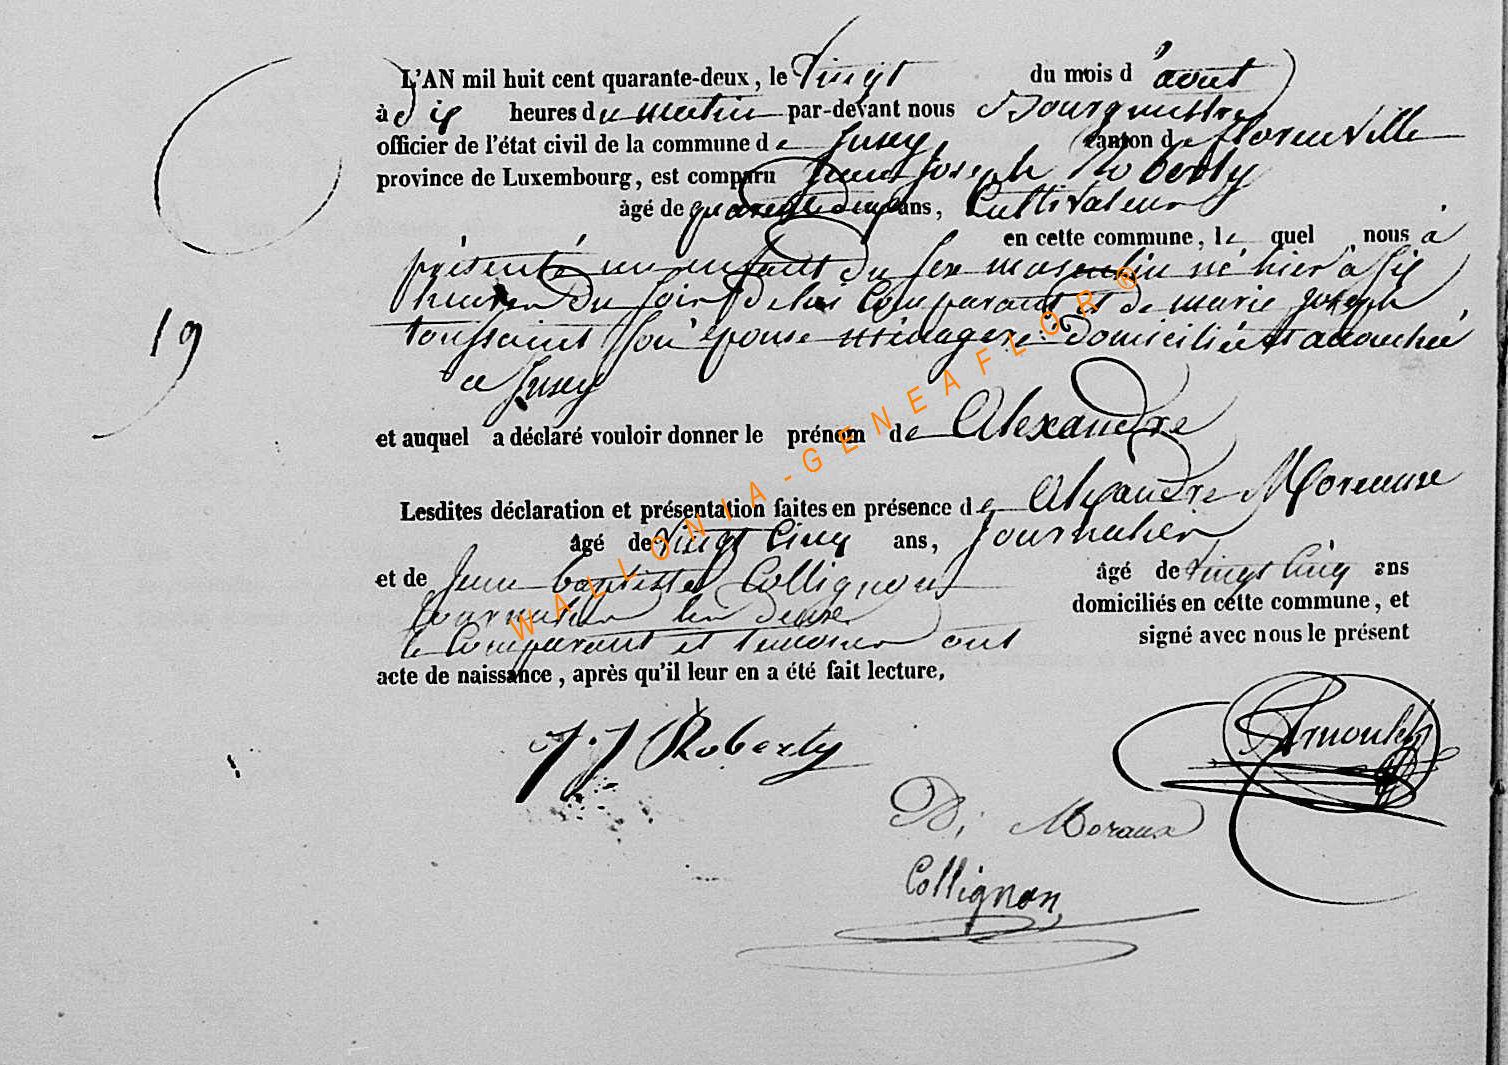 L'AN mil huit cent quarante-deux, le vingt du mois d'aout
à dix heures du matin par-devant nous Bourgmestre
officier de l'état civil de la commune de Jusey canton de florenville
province de Luxembourg, est comparu Jean Joseph Roberty
âgé de quarente deux ans, Cultivateur
en cette commune, lequel nous à
présenté un enfant du sexe masculin né hier à six
heures du soir de lui Comparant et de marie joseph
toussaint son épouse ménagere domiciliée et accouchée
a Jusey
et auquel a déclaré vouloir donner le prénom de Alexandre
19
Lesdites déclaration et présentation faites en présence de Alexandre Moreause
âgé de vingt cinq ans, journalier
et de Jean baptiste Collignon âgé de vingt cinq ans
journalier les deux domiciliés en cette commune, et
le Comparant et temoins ont signé avec nous le présent
acte de naissance, après qu'il leur en a été fait lecture.
J. J Roberty
Arnould
Moraux
Collignon
WALLONIA-GENEAFLOR®